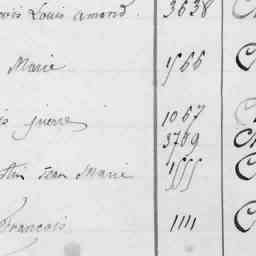 Louis amand. 3638
Marie 1566
pierre 1067
3709
Jean Marie 1555
François 1111